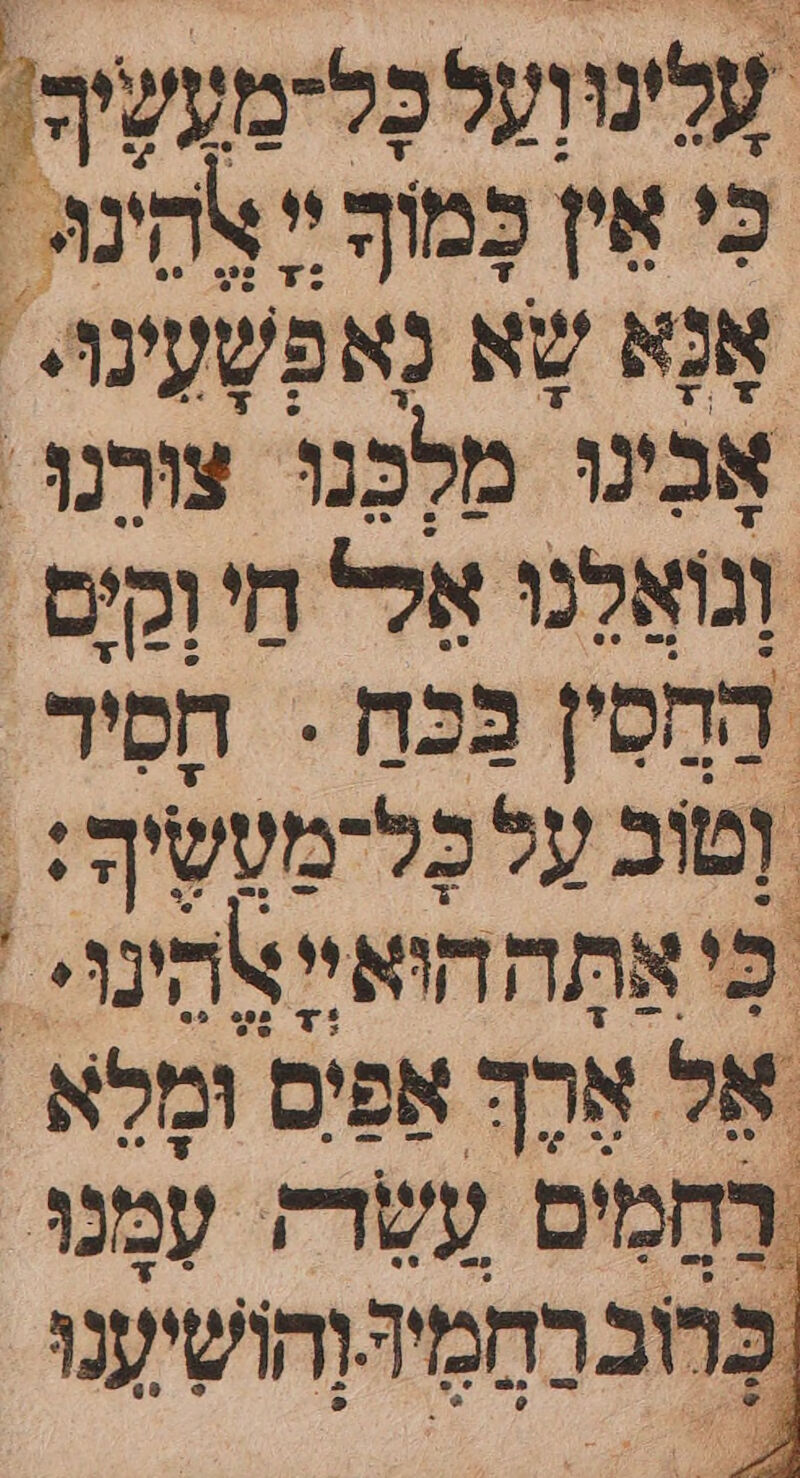 עָלֵינוּ וְעַל כָּל־מַעֲשֶׂיךָ
כִּי אֵין כָּמוֹךָ יְיָ אֱלֹהֵינוּ.
אָנָּא שָׂא נָא פְשָׁעֵינוּ.
אָבִינוּ מַלְכֵּנוּ צוּרֵנוּ
וְגוֹאֲלֵנוּ אֵל חַי וְקַיָּם
הַחֲסִין בַּכֹּחַ . חָסִיד
וְטוֹב עַל כָּל־מַעֲשֶׂיךָ :
כִּי אַתָּה הוּא יְיָ אֱלֹהֵינוּ.
אֵל אֶרֶךְ אַפַּיִם וּמָלֵא
רַחֲמִים עֲשֵׂה עִמָּנוּ
כְּרוֹב רַחֲמֶיךָ. וְהוֹשִׁיעֵנוּ